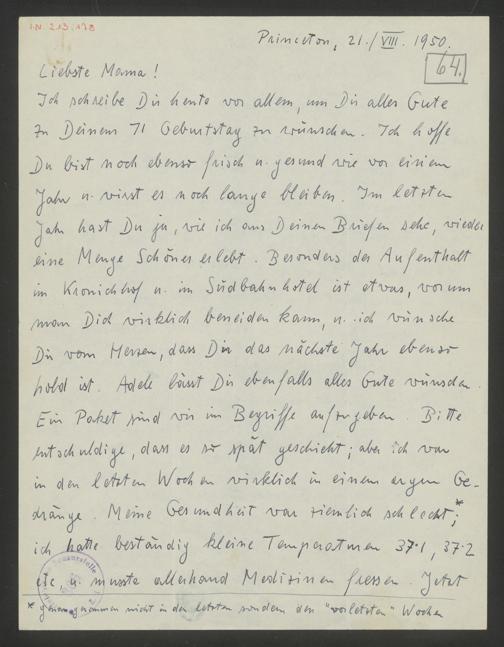 I.N. 213.178
Princeton, 21./VIII. 1950.
64.
Liebste Mama!
Ich schreibe Dir heute vor allem, um Dir alles Gute
zu Deinem 71 Geburtstag zu wünschen. Ich hoffe
Du bist noch ebenso frisch u. gesund wie vor einem
Jahr u. wirst es noch lange bleiben. Im letzten
Jahr hast Du ja, wie ich aus Deinen Briefen sehe, wieder
eine Menge Schönes erlebt. Besonders der Aufenthalt
im Kronichhof u. im Südbahnhotel ist etwas, worum
man Dich wirklich beneiden kann, u. ich wünsche
Dir vom Herzen, dass Dir das nächste Jahr ebenso
hold ist. Adele lässt Dir ebenfalls alles Gute wünschen.
Ein Paket sind wir im Begriffe aufzugeben. Bitte
entschuldige, dass es so spät geschieht; aber ich war
in den letzten Wochen wirklich in einem argen Ge-
dränge. Meine Gesundheit war ziemlich schlecht*;
ich hatte beständig kleine Temperaturen 37·1, 37·2
etc. u. musste allerhand Medizinen fressen. Jetzt
* genau genommen nicht in den letzten sondern den "vorletzten" Wochen